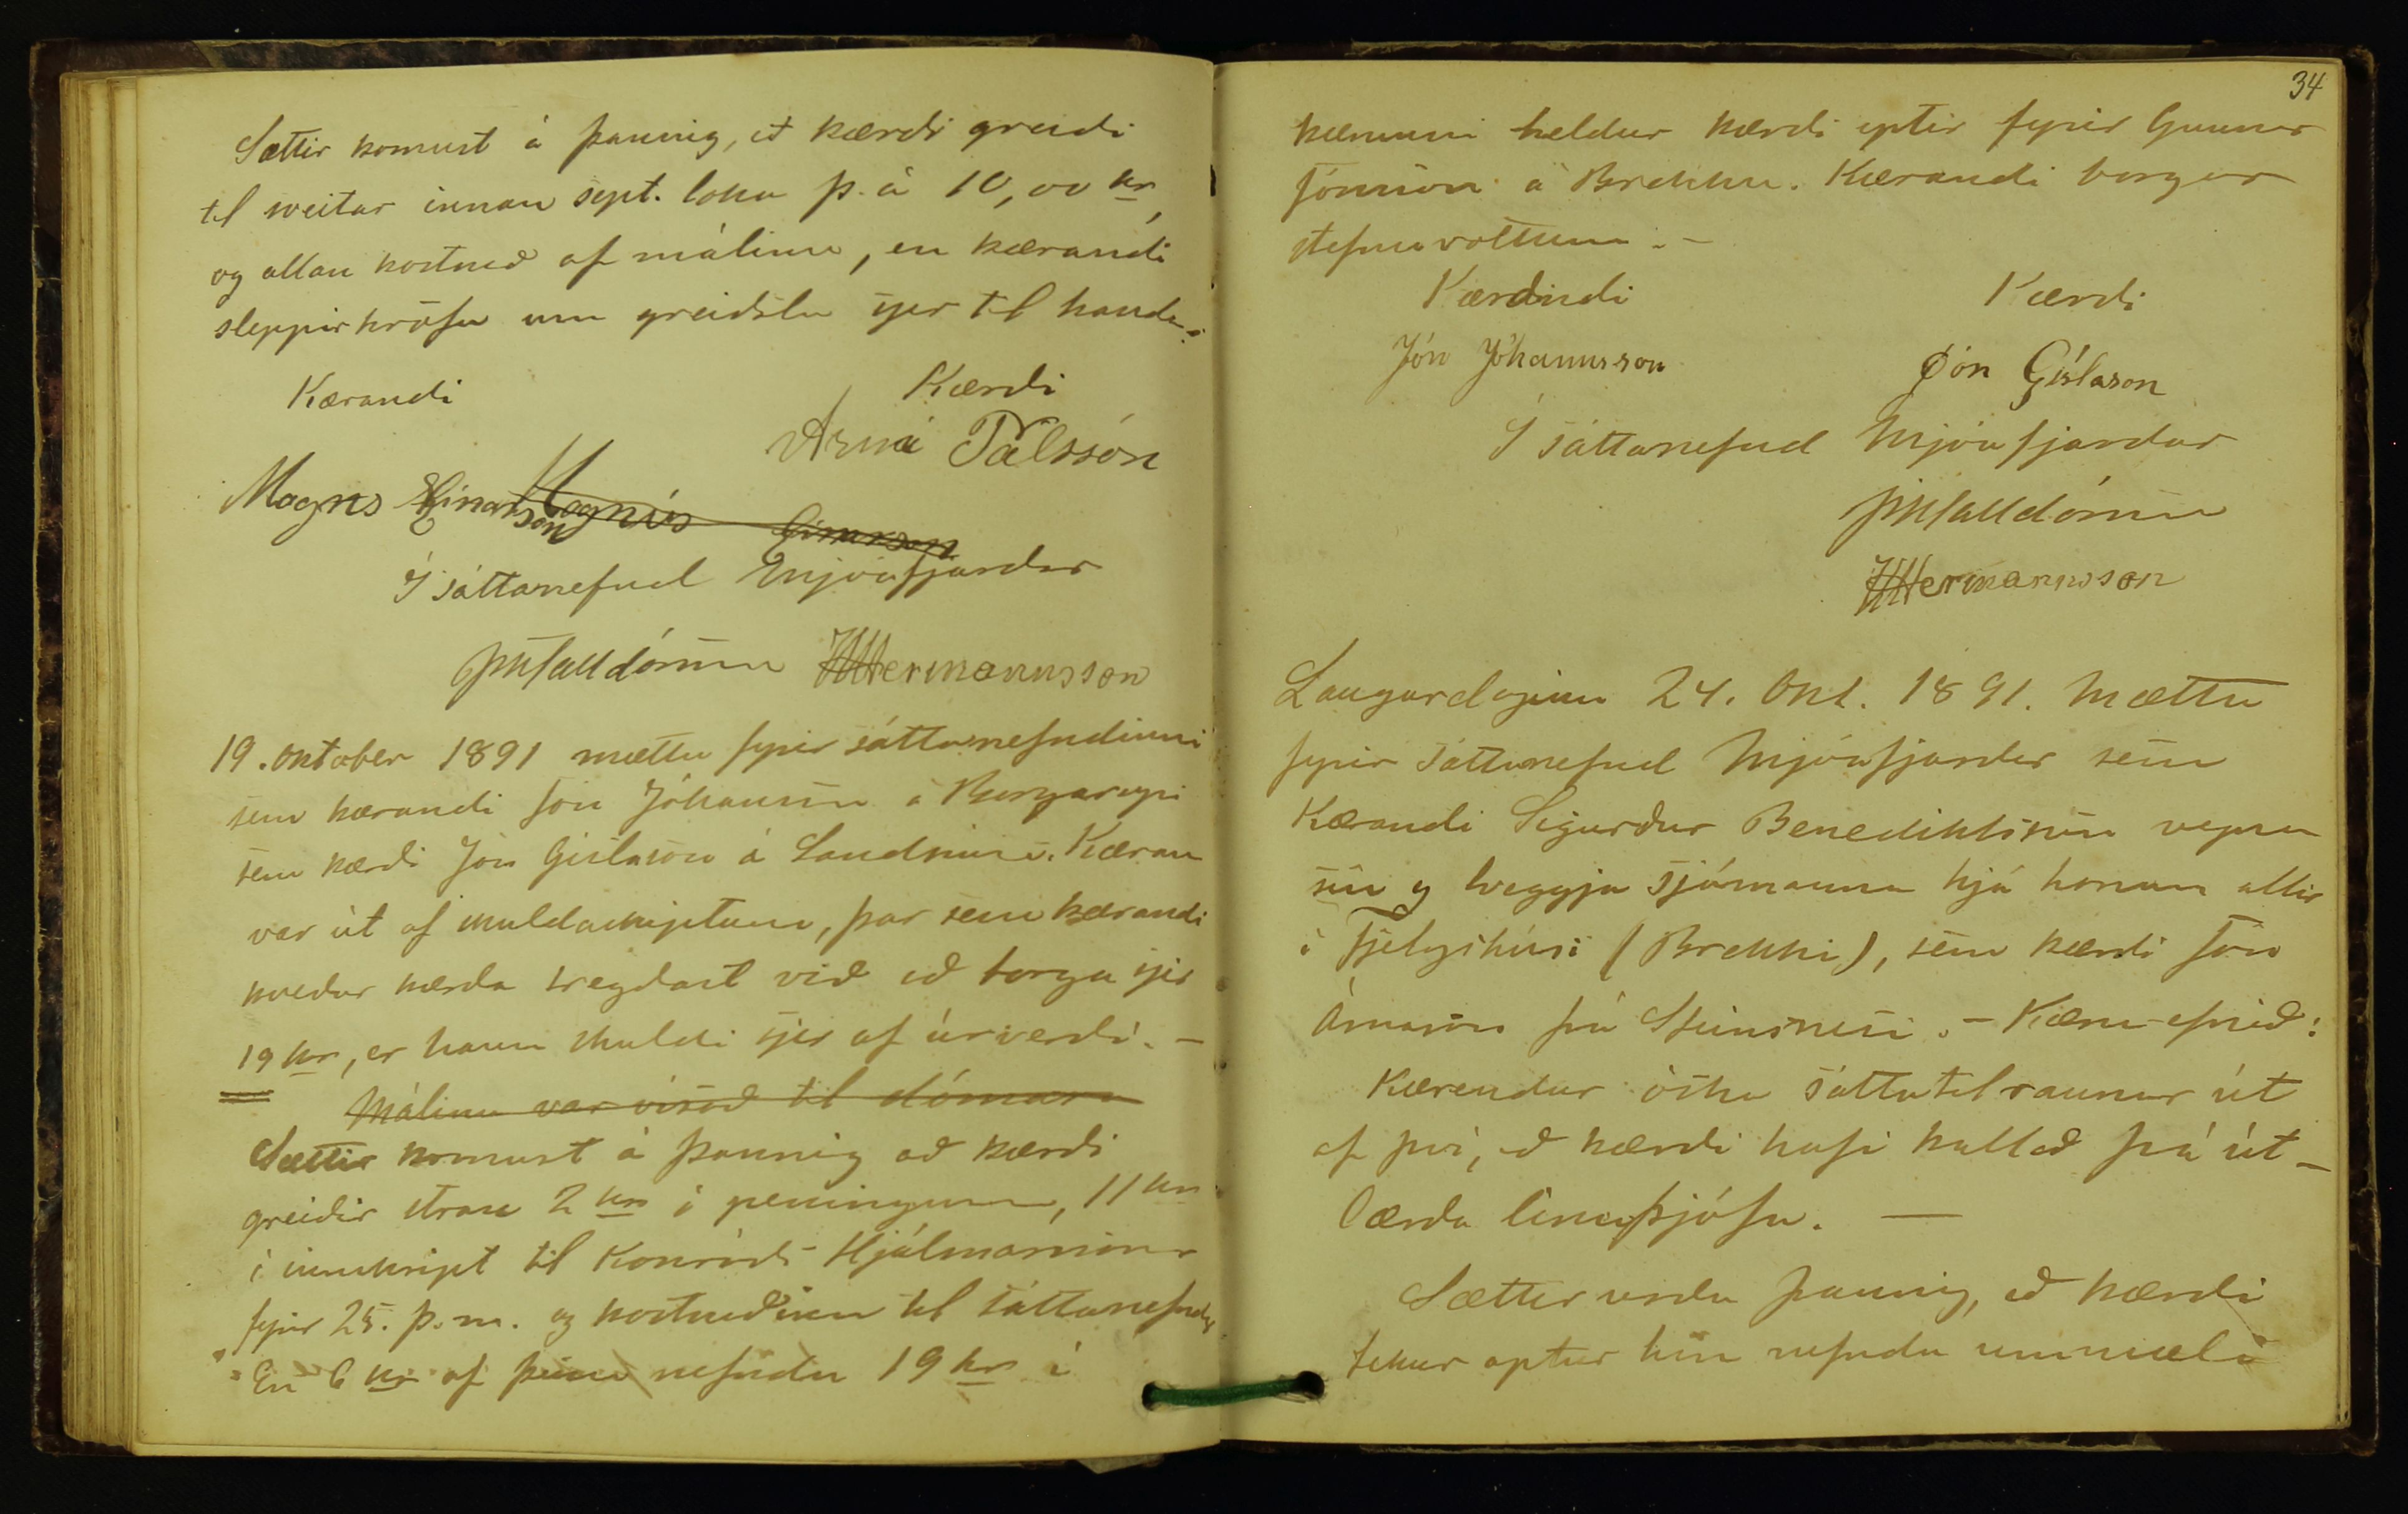 Sættir komust á þannig, at kærði greiði
til sveitar innan sept. loka þ. á 10,00 kr,
og allan kostnað af málinu, en kærandi
sleppir kröfu um greiðslu sjer til handa.
Kærandi Kærði
Arni Pálssón
Magns Einarsson Magnús Einarson
Í sáttanefnd Mjóafjarðar
HHermannsson
19. október 1891 mættu fyrir sáttanefndinni
sem kærandi Jón Jóhannsson á Borgareyri
sem kærði Jón Gíslason á Sandhúsi. Kæran
var út af skuldaskiptum, þar sem kærandi
kveður kærða tregðast við að borga sjer
19 kr, er hann skuldi sjer af úrverði. -
Málinu var vísað til dómara
Sættir komust á þannig að kærði
greiðir strax 2 kr í peningum, 11 kr
í innskript til Konráðs Hjálmarssonar
fyrir 25. þ.m. og kostnaðinn til sáttanefndar
En 6 kr af þeim nefndu 19 kr í
34
kærunni heldur kærði eptir fyrir Gunnar
Jónsson á Brekku. Kærandi borgar
stefnuvottum. -
Kærandi Kærði
Jón Jóhannsson Jón Gíslason
Í sáttanefnd Mjóafjarðar
HHermannsson
Laugardaginn 24. Okt. 1891. Mættu
fyrir sáttanefnd Mjóafjarðar sem
Kærandi Sigurður Benediktsson vegna
sín og tveggja sjómanna hjá honum allir
í Fjelagshúsi (Brekku), sem kærði Jón
Árnason frá Steinsnesi. - Kæruefnið:
Kærendur óska sáttatilraunar út
af því, að kærði hafi kallað þá út-
lærða línuþjófa. -
Sættir urðu þannig, að kærði
tekur aptur hin nefndu ummæli